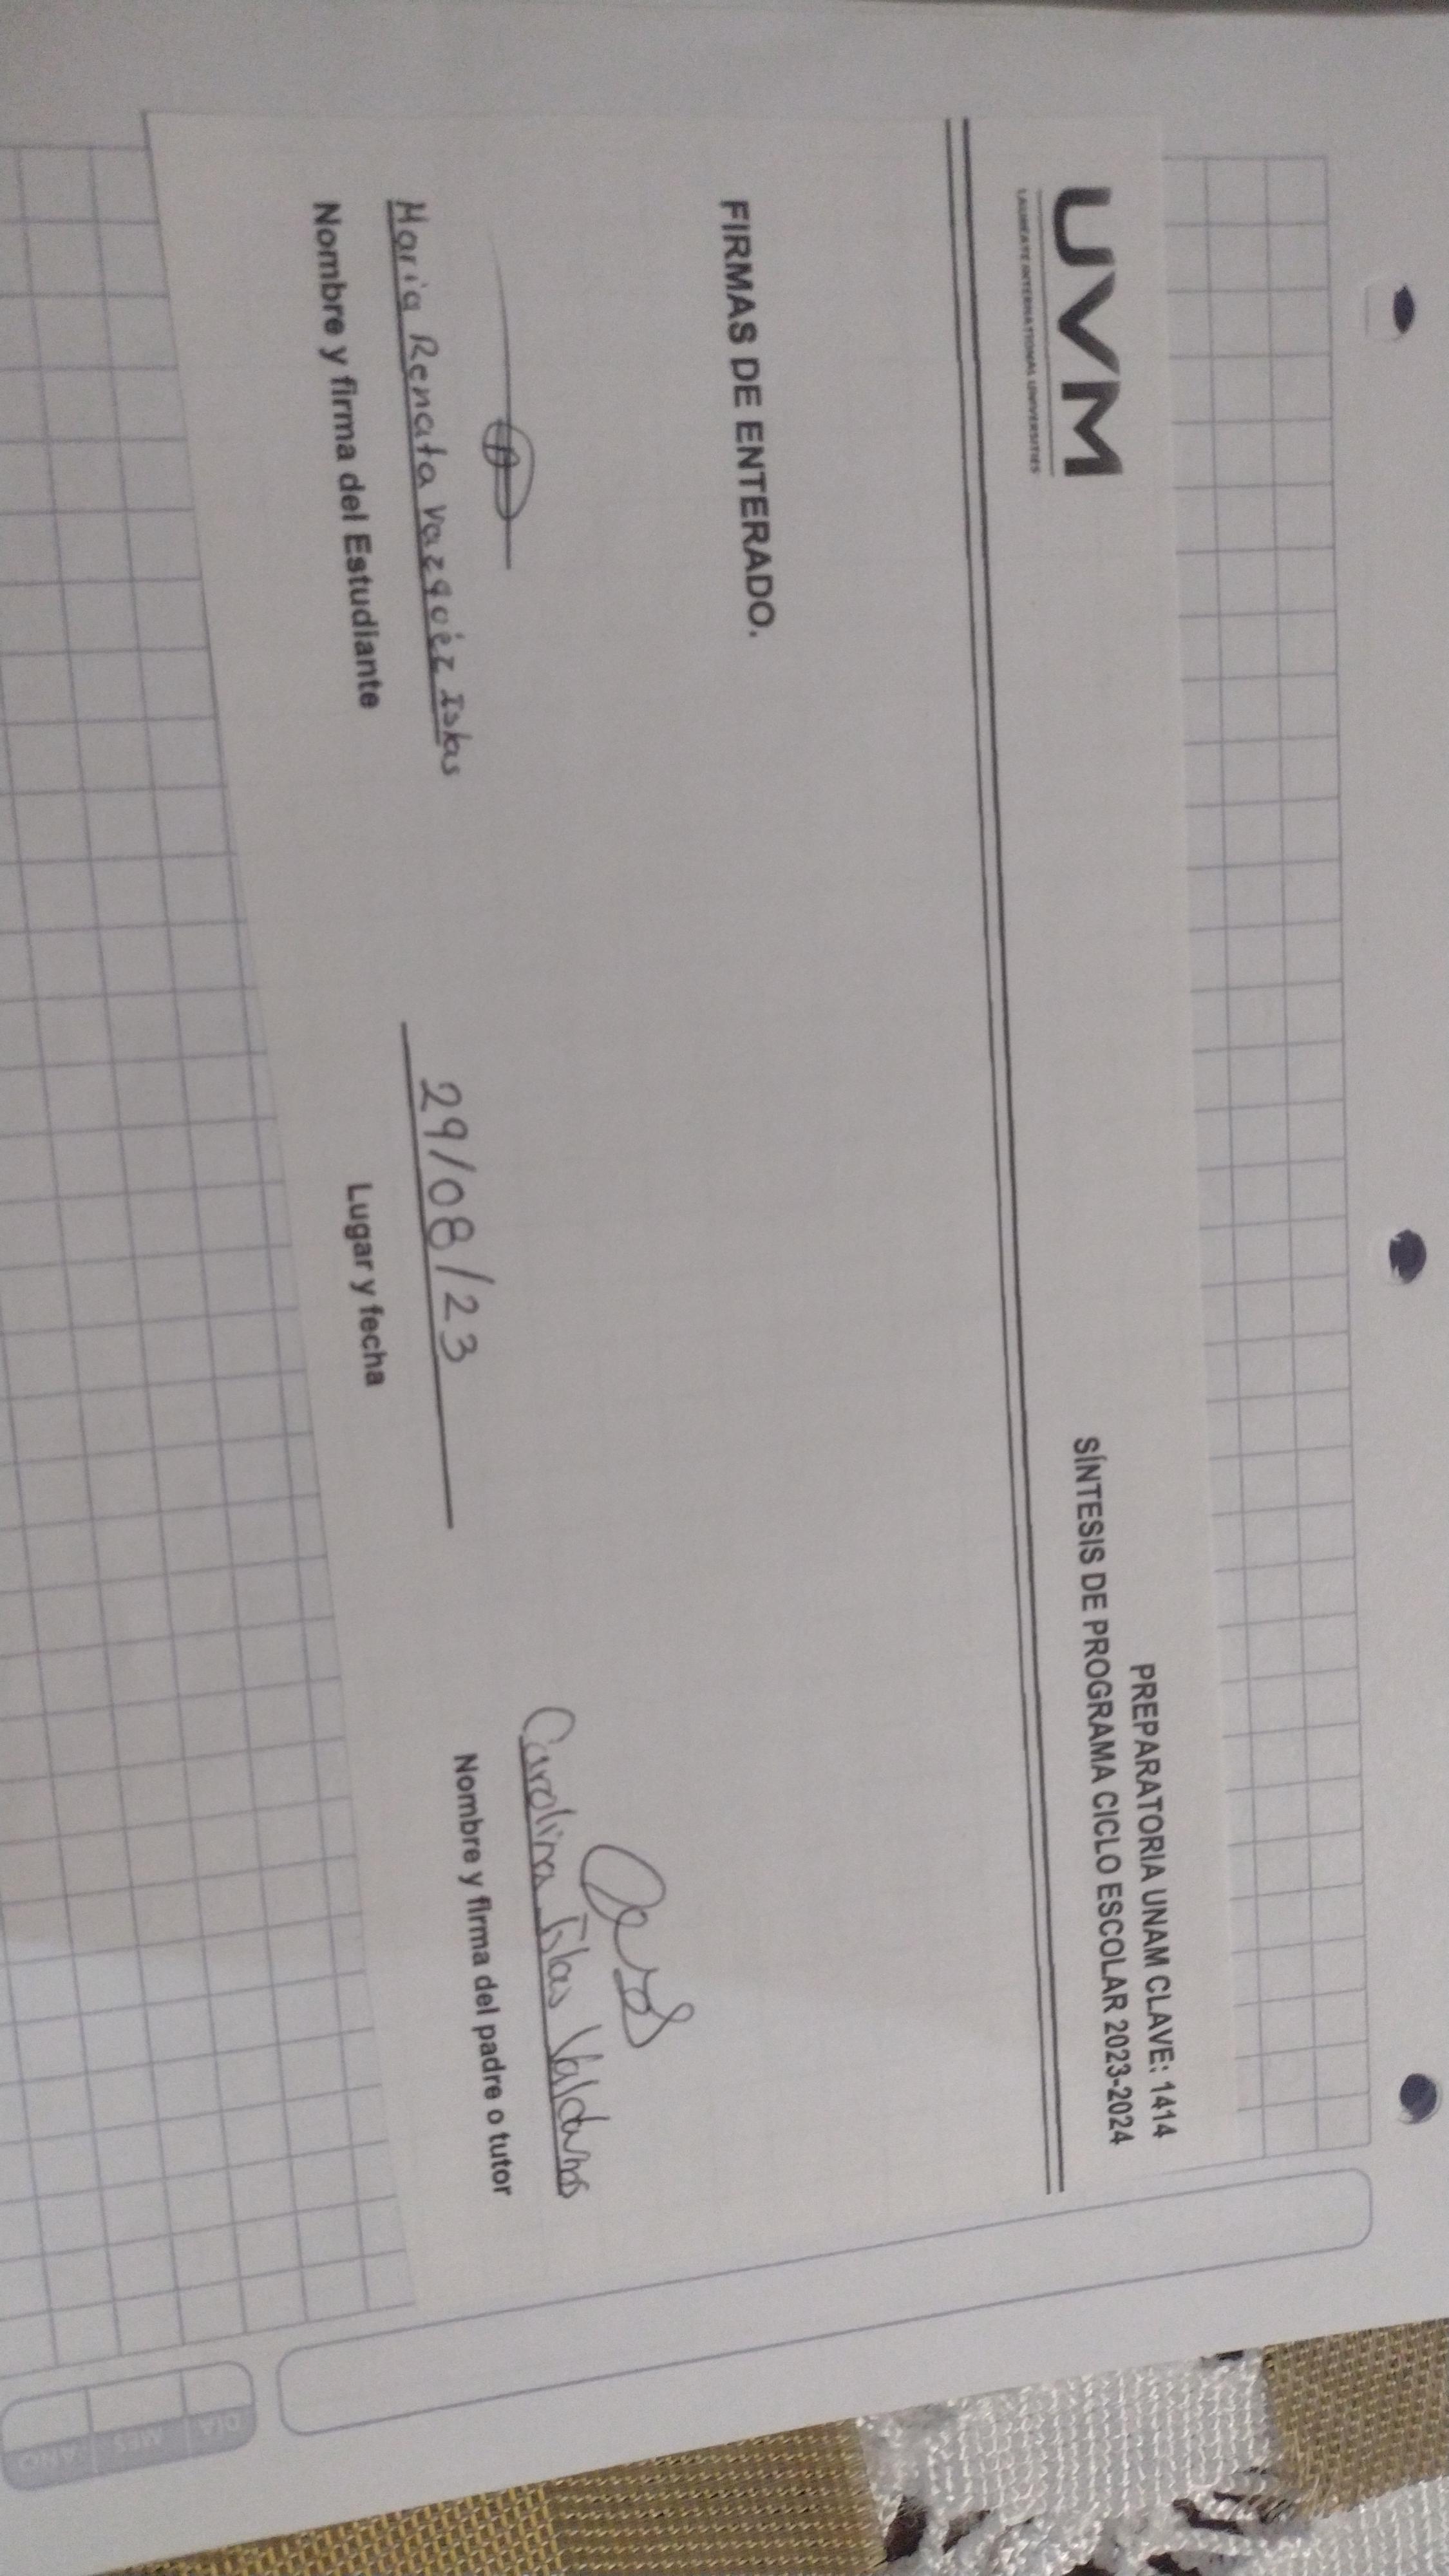 UVM
LAUREATE INTERNATIONAL UNIVERSITIES
PREPARATORIA UNAM CLAVE: 1414
SÍNTESIS DE PROGRAMA CICLO ESCOLAR 2023-2024
FIRMAS DE ENTERADO.
Maria Renata Vazquéz Islas
Nombre y firma del Estudiante
29/08/23
Lugar y fecha
Carolina Islas Valdamos
Nombre y firma del padre o tutor
DIA MES AÑO